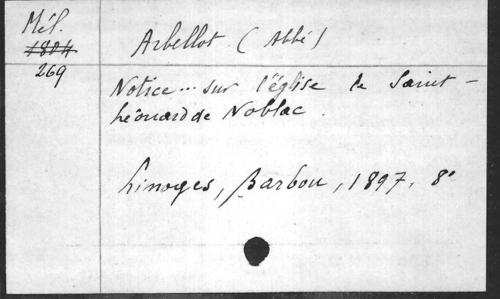 Mél.
1804
269
Arbellot (Abbé)
Notice... sur l'église de Saint-
Léonard de Noblac.
Limoges, Barbou, 1897, 8°